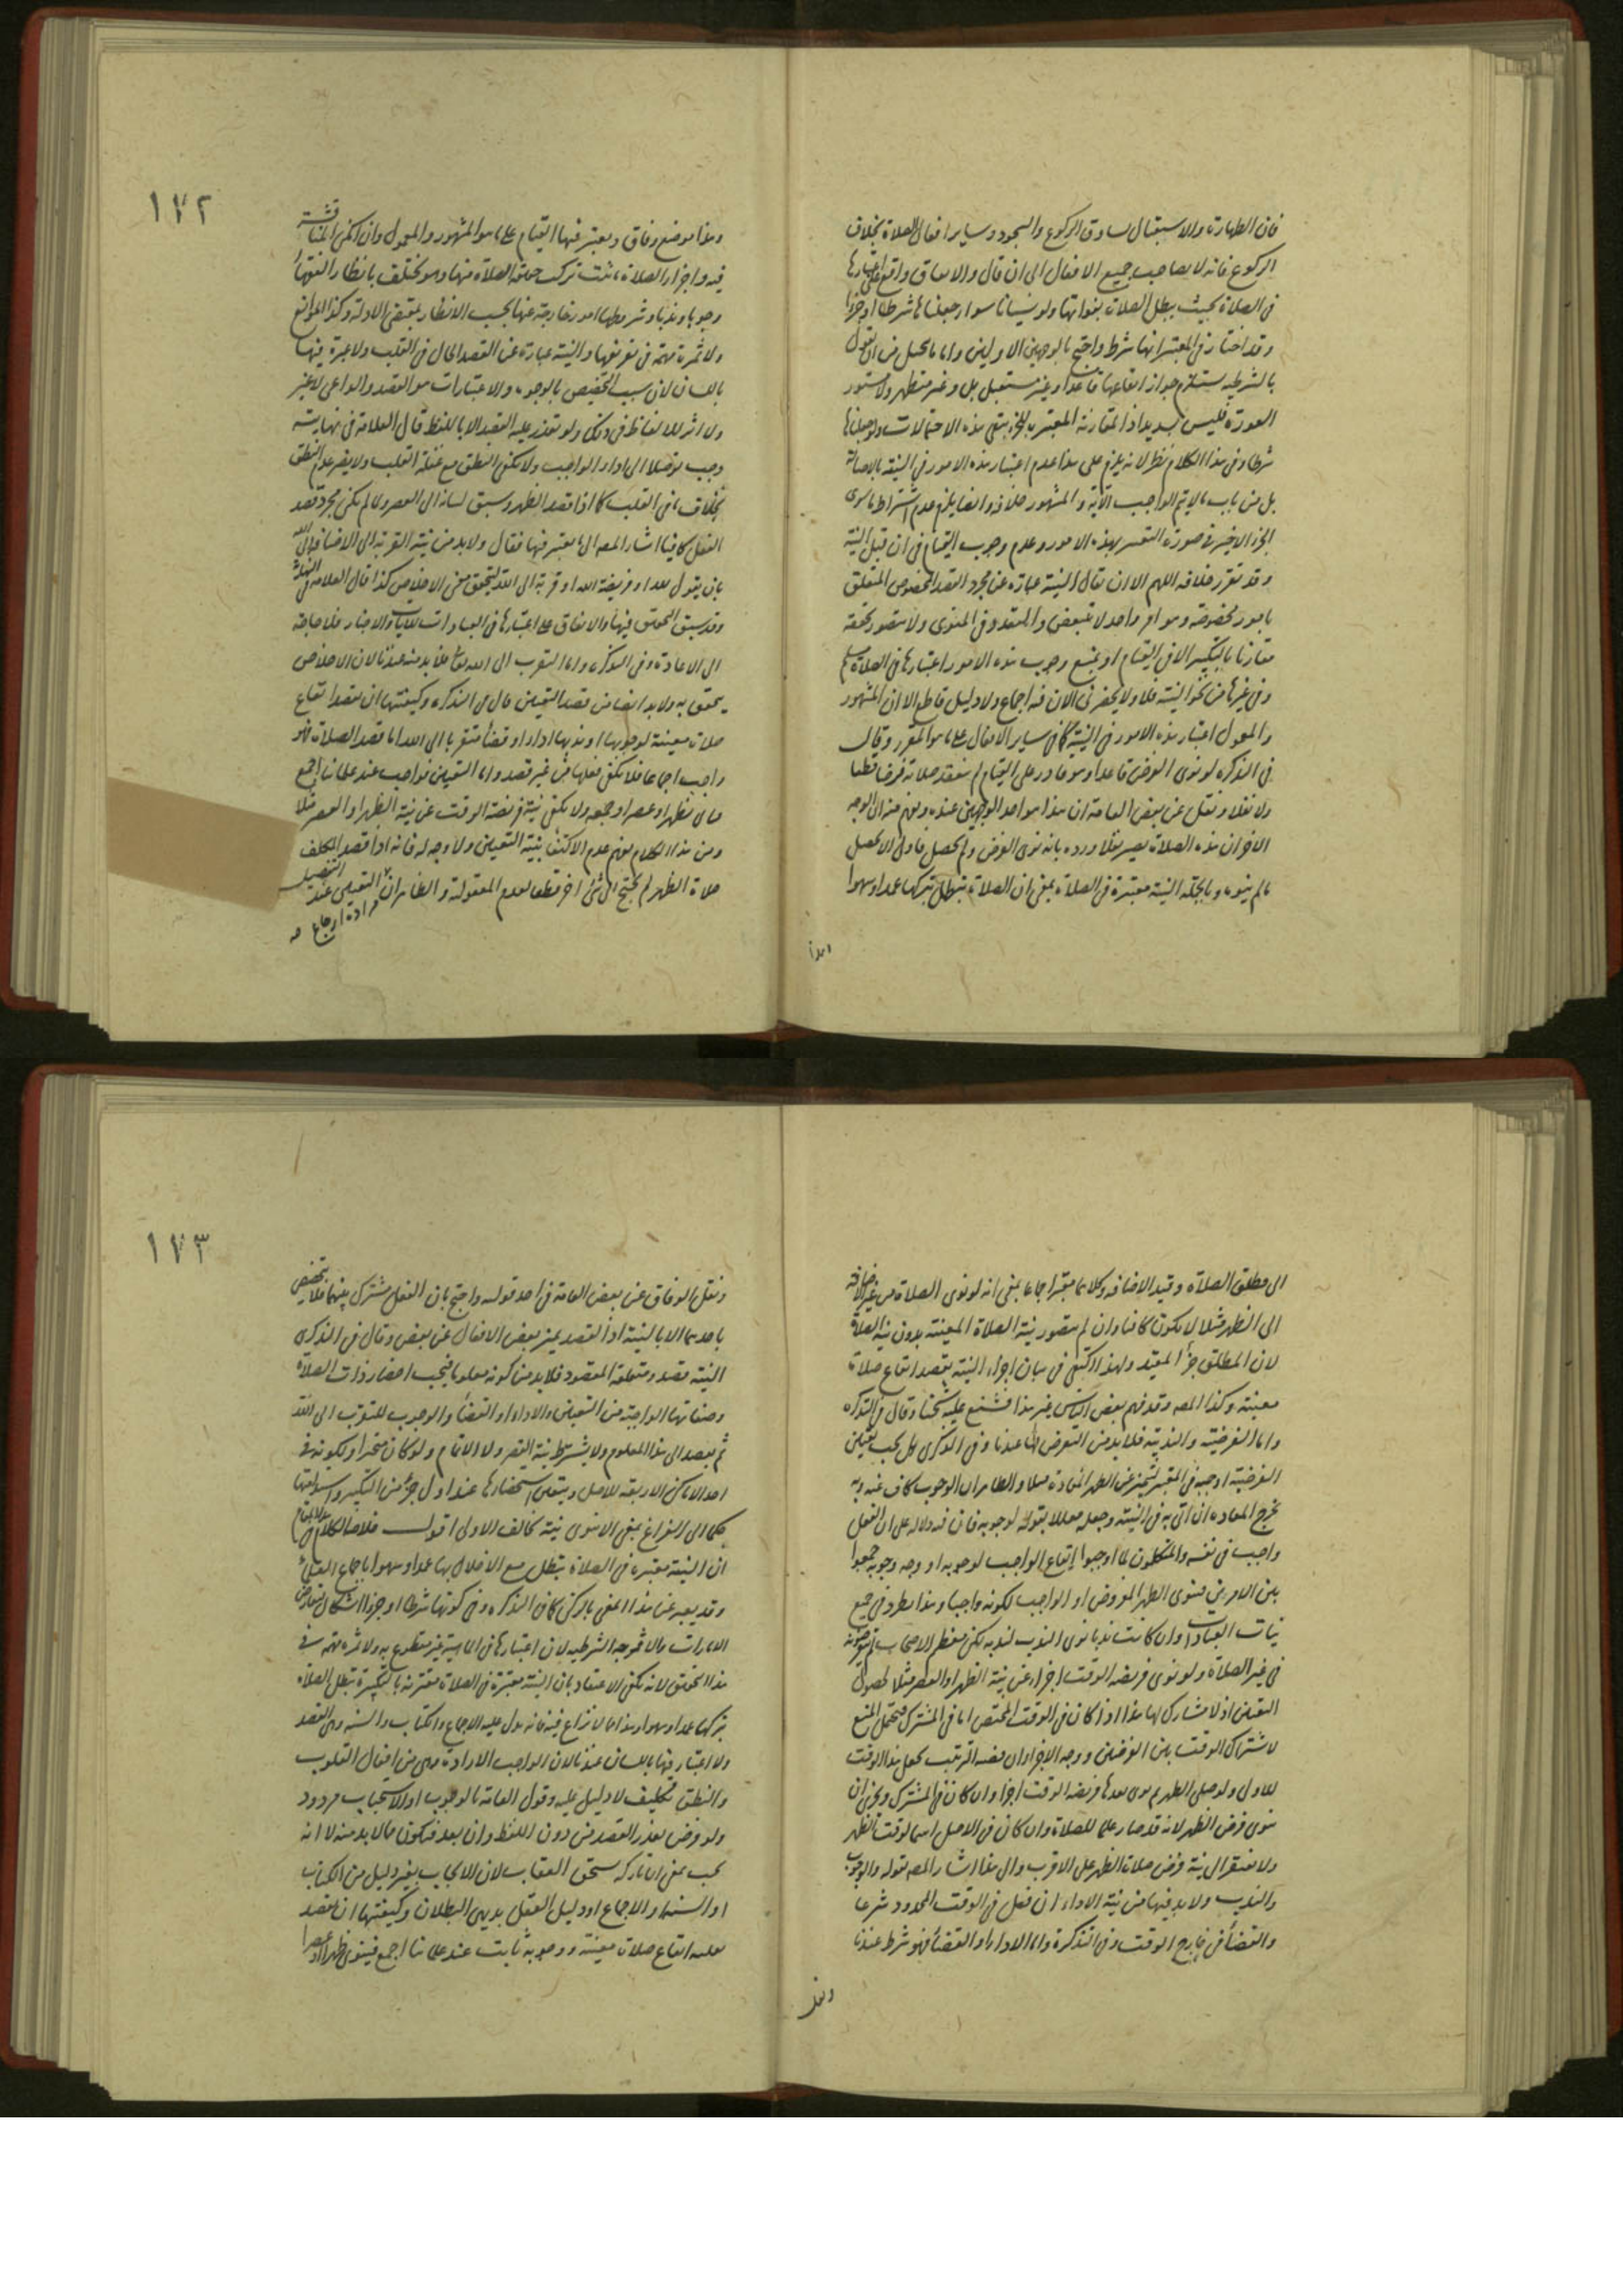 فان الطهارة والاستقبال يساوق الركوع والسجود وساير افعال الصلاة بخلاف
الركوع فانه لا يصاحب جميع الافعال الى ان قال والاتفاق واقع على اعتبارها
فى الصلاة بحيث يبطل الصلاة بفواتها ولو نسيانا سواء جعلناها شرطا او جزءا
وقد اختار فى المعتبر انها شرط واحتج بالوجهين الاولين واما ما تحيل من ان القول
بالشرطية يستلزم جواز ايقاعها قاعدا وغير مستقبل بل وغير متطهر ولا مستور
العورة فليس بسديد اذ المقارنة المعتبرة للجزء تنفى هذه الاحتمالات ولو جعلناها
شرطا وفى هذا الكلام نظر لانه يلزم على هذا عدم اعتبار هذه الامور فى النية بالاصالة
بل من باب ما لا يتم الواجب الا به والمشهور خلافه وايضا يلزم عدم اشتراط ما سوى
الجزء الاخير فى صورة التفسير بهذه الامور وعدم وجوب القيام فى ان قبل النية
وقد تقرر خلافه اللهم الا ان يقال النية عبارة عن مجرد القصد المخصوص المتعلق
بامور مخصوصة وهو امر واحد لا تتبعض والمتعدد فى المنوى ولا يتصور تحققه
مقارنا بالتكبير الا فى القيام او يمنع وجوب هذه الامور اعتبارها فى الصلاة مسلم
وفى غيرها من نحو النية فلا ولا يحضرنى الان فيه اجماع ولا دليل قاطع الا ان المشهور
والمعمول اعتبار هذه الامور فى النية كما فى ساير الافعال على ما هو المقرر وقال
فى التذكرة لو نوى الفرض قاعدا وهو قادر على القيام لم ينعقد صلاته فرضا قطعا
ولا نفلا ونقل عن بعض العامة ان هذا هو احد الوجهين عنده ويفهم منه ان الوجه
الاخر ان هذه الصلاة يصير نفلا ورده بانه نوى الفرض ولم يحصل فاولى الا يحصل
ما لم ينوه وبالجملة النية معتبرة فى الصلاة بمعنى ان الصلاة تبطل بتركها عمدا وسهوا
١٧٢
وهذا موضع وفاق ويعتبر فيها القيام على ما هو المشهور والمعمول وان امكن المناقشة
فيه واجزاء الصلاة ما تركب حقيقة الصلاة منها وهو يختلف بانظار الفقهاء
وجوبا وندبا وشروطها امور خارجة عنها بحسب الانظار بمقتضى الادلة وكذا الموانع
ولا ثمرة مهمة فى تعريفها والنية عبارة عن القصد الحال فى القلب ولا عبرة فيها
باللسان لان سبب التخصيص بالوجوه والاعتبارات هو القصد والداعى لا غير
ولا اثر للالفاظ فى ذلك ولو تعذر عليه القصد الا باللفظ قال العلامة فى نهايته
وجب توصلا الى اداء الواجب ولا يكفى النطق مع غفلة القلب ولا يضر عدم النطق
بخلاف ما فى القلب كما اذا قصد الظهر وسبق لسانه الى العصر ولا لم يكن مجرد قصد
الفعل كافيا اشار المصه الى ما يعتبر فيها فقال ولا بد من نية القربة الى الاضافة الى الله
بان يقول لله او فريضة الله او قربة الى الله ليتحقق معنى الاخلاص كذا قال العلامة فى النهاية
وقد سبق التحقيق فيها والاتفاق على اعتبارها فى العبادات للايات والاخبار فلا حاجة
الى الاعادة وفى التذكرة واما التقرب الى الله تعالى فلا بد منه عندنا لان الاخلاص
يتحقق به ولا بد ايضا من قصد التعيين قال فى التذكرة وكيفيتها ان يقصد ايقاع
صلاة معينة لوجوبها او ندبها اداء او قضاء متقربا الى الله اما قصد الصلاة فهو
واجب اجماعا فلا يكفى فعلها من غير قصد واما التعيين فواجب عند علمائنا اجمع
فيأتى بظهر او عصر او جمعة ولا يكفى نية فريضة الوقت عن نية الظهر او العصر مثلا
ومن هذا الكلام يفهم عدم الاكتفاء بنية التعيين ولا وجه له فانه اذا قصد المكلف
صلاة الظهر لم يحتج الى شئ اخر قطعا لعدم المعقولية والظاهر ان التعيين عند التفصيل
مراده ارجاع
ابدا
الى مطلق الصلاة وقيد الاضافة وكلاهما معتبر اجماعا بمعنى انه لو نوى الصلاة من غير اضافة
الى الظهر مثلا لا يكون كافيا وان لم يتصور نية الصلاة المعينة بدون نية الصلاة
لان المطلق جزء المقيد ولهذا اكتفى فى بيان اجزاء النية بقصد ايقاع صلاة
معينة وكذا المصه وقد فهم بعض الناس غير هذا فشنع عليه شيخنا وقال فى التذكرة
واما الفرضية والندبية فلا بد من التعرض لها عندنا وفى الذكرى هل يجب تعيين
الفرضية اوجبه فى المعتبر ليتميز عن الظهر المعادة مثلا والظاهر ان الوجوب كاف عنه وبه
يخرج المعادة ان اتى به فى النية وجعله معللا بقوله لوجوبه فان فيه دلالة على ان الفعل
واجب فى نفسه والمتكلمون لما اوجبوا ايقاع الواجب لوجوبه او وجه وجوبه جمعوا
بين الامرين فينوى الظهر المفروض او الواجب لكونه واجبا وهذا يطرد فى جميع
نيات العبادات وان كانت ندبا نوى الندب لندبه لكن معظم الاصحاب لم يتعرضوا له
فى غير الصلاة ولو نوى فريضة الوقت اجزاء عن نية الظهر او العصر مثلا لحصول
التعيين اذ لا مشارك لها هذا اذا كان فى الوقت المختص اما فى المشترك فيحتمل المنع
لاشتراك الوقت بين الفرضين ووجه الاجزاء ان قضية الترتيب يجعل هذا الوقت
للاولى ولو صلى الظهر ثم نوى بعدها فريضة الوقت اجزاء وان كان فى المشترك ويجزى ان
ينوى فرض الظهر لانه قد صار علما للصلاة وان كان فى الاصل اسما لوقت الظهر
ولا يفتقر الى نية فرض صلاة الظهر على الاقرب والى هذا اشار المصه بقوله والوجوب
والندب ولا بد فيها من نية الاداء ان فعل فى الوقت المحدود شرعا
والقضاء فى خارج الوقت وفى التذكرة واما الاداء او القضاء فهو شرط عندنا
١٧٣
ونقل الوفاق عن بعض العامة فى احد قوليه واحتج بان الفعل مشترك بينهما فلا يتخصص
باحدهما الا بالنية اذ القصد يميز بعض الافعال عن بعض وقال فى الذكرى
النية قصد ومتعلقه المقصود فلا بد من كونه معلوما فيجب احضار ذات الصلاة
وصفاتها الواجبة من التعيين والاداء او القضاء والوجوب للتقرب الى الله
ثم يقصد الى هذا المعلوم ولا يشترط نية القصر ولا الاتمام ولو كان مخيرا ولكونه فى
احد الاماكن الاربعة للاصل ويتعين استحضارها عند اول جزء من التكبير واستدامتها
حكما الى الفراغ بمعنى الا ينوى نية تخالف الاولى اقول خلاصة الكلام فى هذا المقام
ان النية معتبرة فى الصلاة تبطل مع الاخلال بها عمدا وسهوا باجماع العلماء
وقد يعبر عن هذا المعنى بالركن كما فى التذكرة وفى كونها شرطا او جزءا اشكال لتعارض
الامارات والاقرب الشرطية لان اعتبارها فى الماهية غير مقطوع به ولا ثمرة مهمة فى
هذا التحقيق لانه يكفى الاعتقاد بان النية معتبرة فى الصلاة مقترنة بالتكبيرة تبطل الصلاة
بتركها عمدا وسهوا وهذا مما لا نزاع فيه فانه يدل عليه الاجماع والكتاب والسنة وهى القصد
ولا اعتبار فيها باللسان عندنا لان الواجب الارادة وهى من افعال القلوب
والنطق تكليف لا دليل عليه وقول العامة بالوجوب او الاستحباب مردود
ولو فرض تعذر القصد من دون اللفظ وان بعد فيكون مما لا بد منه لا انه
يجب بمعنى ان تاركه يستحق العقاب لان الايجاب بغير دليل من الكتاب
او السنة او الاجماع او دليل العقل بديهى البطلان وكيفيتها ان يقصد
بقلبه ايقاع صلاة معينة ووجوبه ثابت عند علمائنا اجمع فينوى ظهرا او عصرا
ونقل